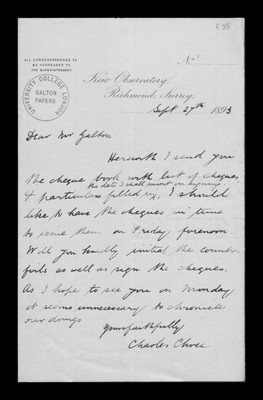 ALL CORRESPONDENCE IS
TO BE ADDRESSED TO
THE SUPERINTENDENT.
No
UNIVERSITY COLLEGE LONDON
GALTON
PAPERS
Kew Observatory,
Richmond, Surrey.
Sept 27th 1893
Dear Mr Galton
Herewith I send you
the cheque book with list of cheques
the date I shall insert on signing
& particulars filled up. I should
like to have the cheques in time
to issue them on Friday forenoon.
Will you kindly initial the counter-
foils as well as sign the cheques.
As I hope to see you on Monday
it seems unnecessary to chronicle
our doings
Yours faithfully
Charles Chree